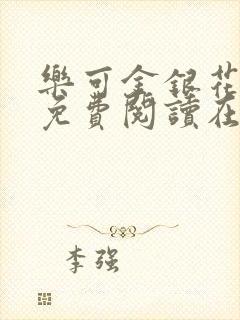 樂可金銀花
免費閱讀在
李强